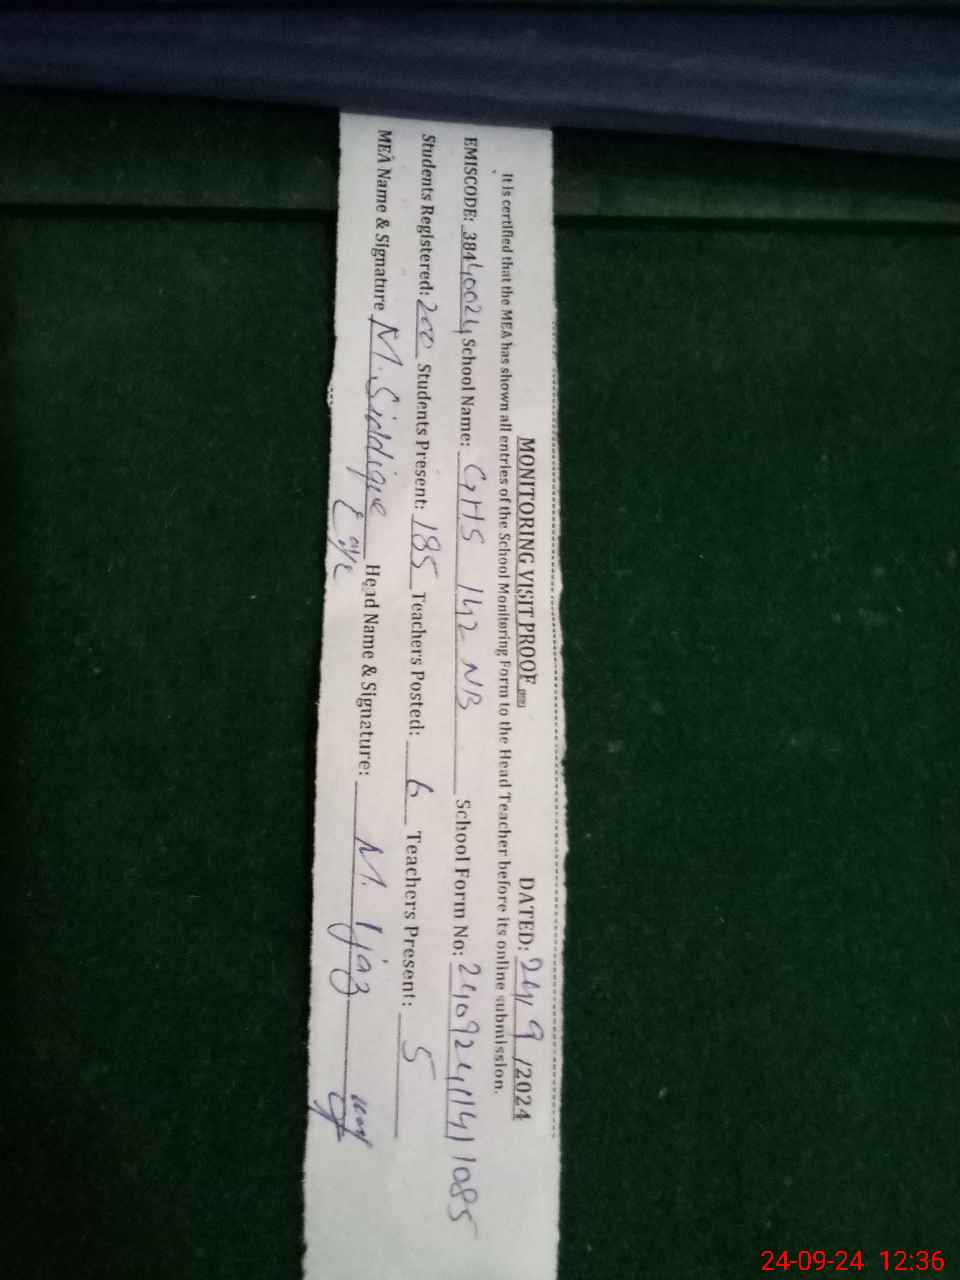 MONITORING VISIT PROOF DATED: 24/9/2024
It is certified that the MEA has shown all entries of the School Monitoring Form to the Head Teacher before its online submission.
EMISCODE: 38440024 School Name: GHS 142 NB School Form No: 2409241141 1085
Students Registered: 200 Students Present: 185 Teachers Posted: 6 Teachers Present: 5
MEA Name & Signature M. Siddique Head Name & Signature: M. Ijaz
24-09-24 12:36